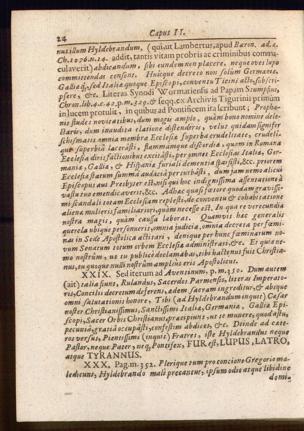 24 Caput II.
nuisticum Hyldebrandum, (quiat Lambertus, apud Baron. ad a.
Ch. 1076. n. 24. addit, tantis vitam probris ac criminibus commaculaverit)
abdicandum, sibi eundem non placere, neque oves lupo
committendas censent. Huicque decreto non solum Germaniæ,
Galliæq́, sed Italiæ quoque Episcopi, conventu Ticini acto, subscripsere,
&c. Literas Synodi Wormatiensis ad Papam
Chron. lib. 4. c. 42. p. m. 329. & seqq. ex Archivis Tigurinis primum
in lucem protulit, in quibus ad Pontificem ita scribunt: Prophanis
studes novitatibus, dum magis amplo, quàm bono nomine delectaris,
dum inaudita elatione distenderis, velut quidam signifer
schismatis omnia membra Ecclesiæ superba crudelitate, crudelique
superbiâ lacerasti, flammamque discordiæ, quam in Romana
Ecclesia diris factionibus excitasti, per omnes Ecclesias Italiæ, Germaniæ,
Galliæ, & Hispaniæ furiali dementiâ sparsisti, &c. priorem
Ecclesiæ statum summâ audaciâ perturbasti, dum jam nemo alicui
Episcopus aut Presbyter est, nisi qui hoc indignissima assentatione à
fastu tuo emendicaverit, &c. Adhæc quasi fœtore quodam gravissimi
scandali totam Ecclesiam replesti, de conventu & cohabitatione
alienæ mulieris familiariore, quàm necesse est. In qua re verecundia
nostra magis, quàm causa laborat. Quamvis hæc generalis
querela ubique personuerit, omnia judicia, omnia decreta per fœminas
in Sede Apostolica actitari, denique per hunc fœminarum novum
Senatum totum orbem Ecclesiæ administrari, &c. Et quia nemo
nostrûm, ut tu publicè declamabas, tibi hactenus fuit Christianus,
tu quoque nulli nostrûm amplius eris Apostolicus.
XXIX. Sed iterum ad Aventinum, p. m. 350. Dum autem
(ait) talia fiunt, Rulandus, Sacerdos Parmensis, literas Imperatoris,
Concilii decretum deferens, ædem sacram ingreditur, & absque
omni salutationis honore, Tibi (ad Hyldebrandum inquit) Cæsar
noster Christianissimus, Sanctissimi Italiæ, Germaniæ, Galliæ Episcopi,
Sacer Orbis Christianus præcipiunt, ut te munere, quod astu,
pecuniâ, gratiâ occupâsti, confestim abdices, &c. Deinde ad cæteros
versus, Pientissimi (inquit) Fratres, iste Hyldebrandus neque
Pastor, neque Pater, neq́, Pontifex, FUR est, LUPUS, LATRO,
atque TYRANNUS.
XXX. Pag. m. 352. Plerique tum pro concione Gregorio maledicunt,
Hyldebrando malè precantur, ipsum odio atque libidine
domi-